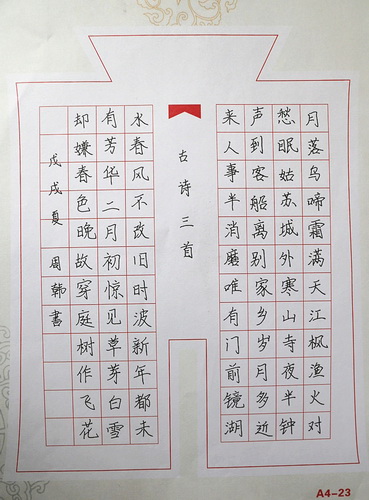 月落乌啼霜满天江枫渔火对
愁眠姑苏城外寒山寺夜半钟
声到客船离别家乡岁月多近
来人事半消磨唯有门前镜湖
古诗三首
水春风不改旧时波新年都未
有芳华二月初惊见草芽白雪
却嫌春色晚故穿庭树作飞花
戊戌夏 周韩書
A4-23